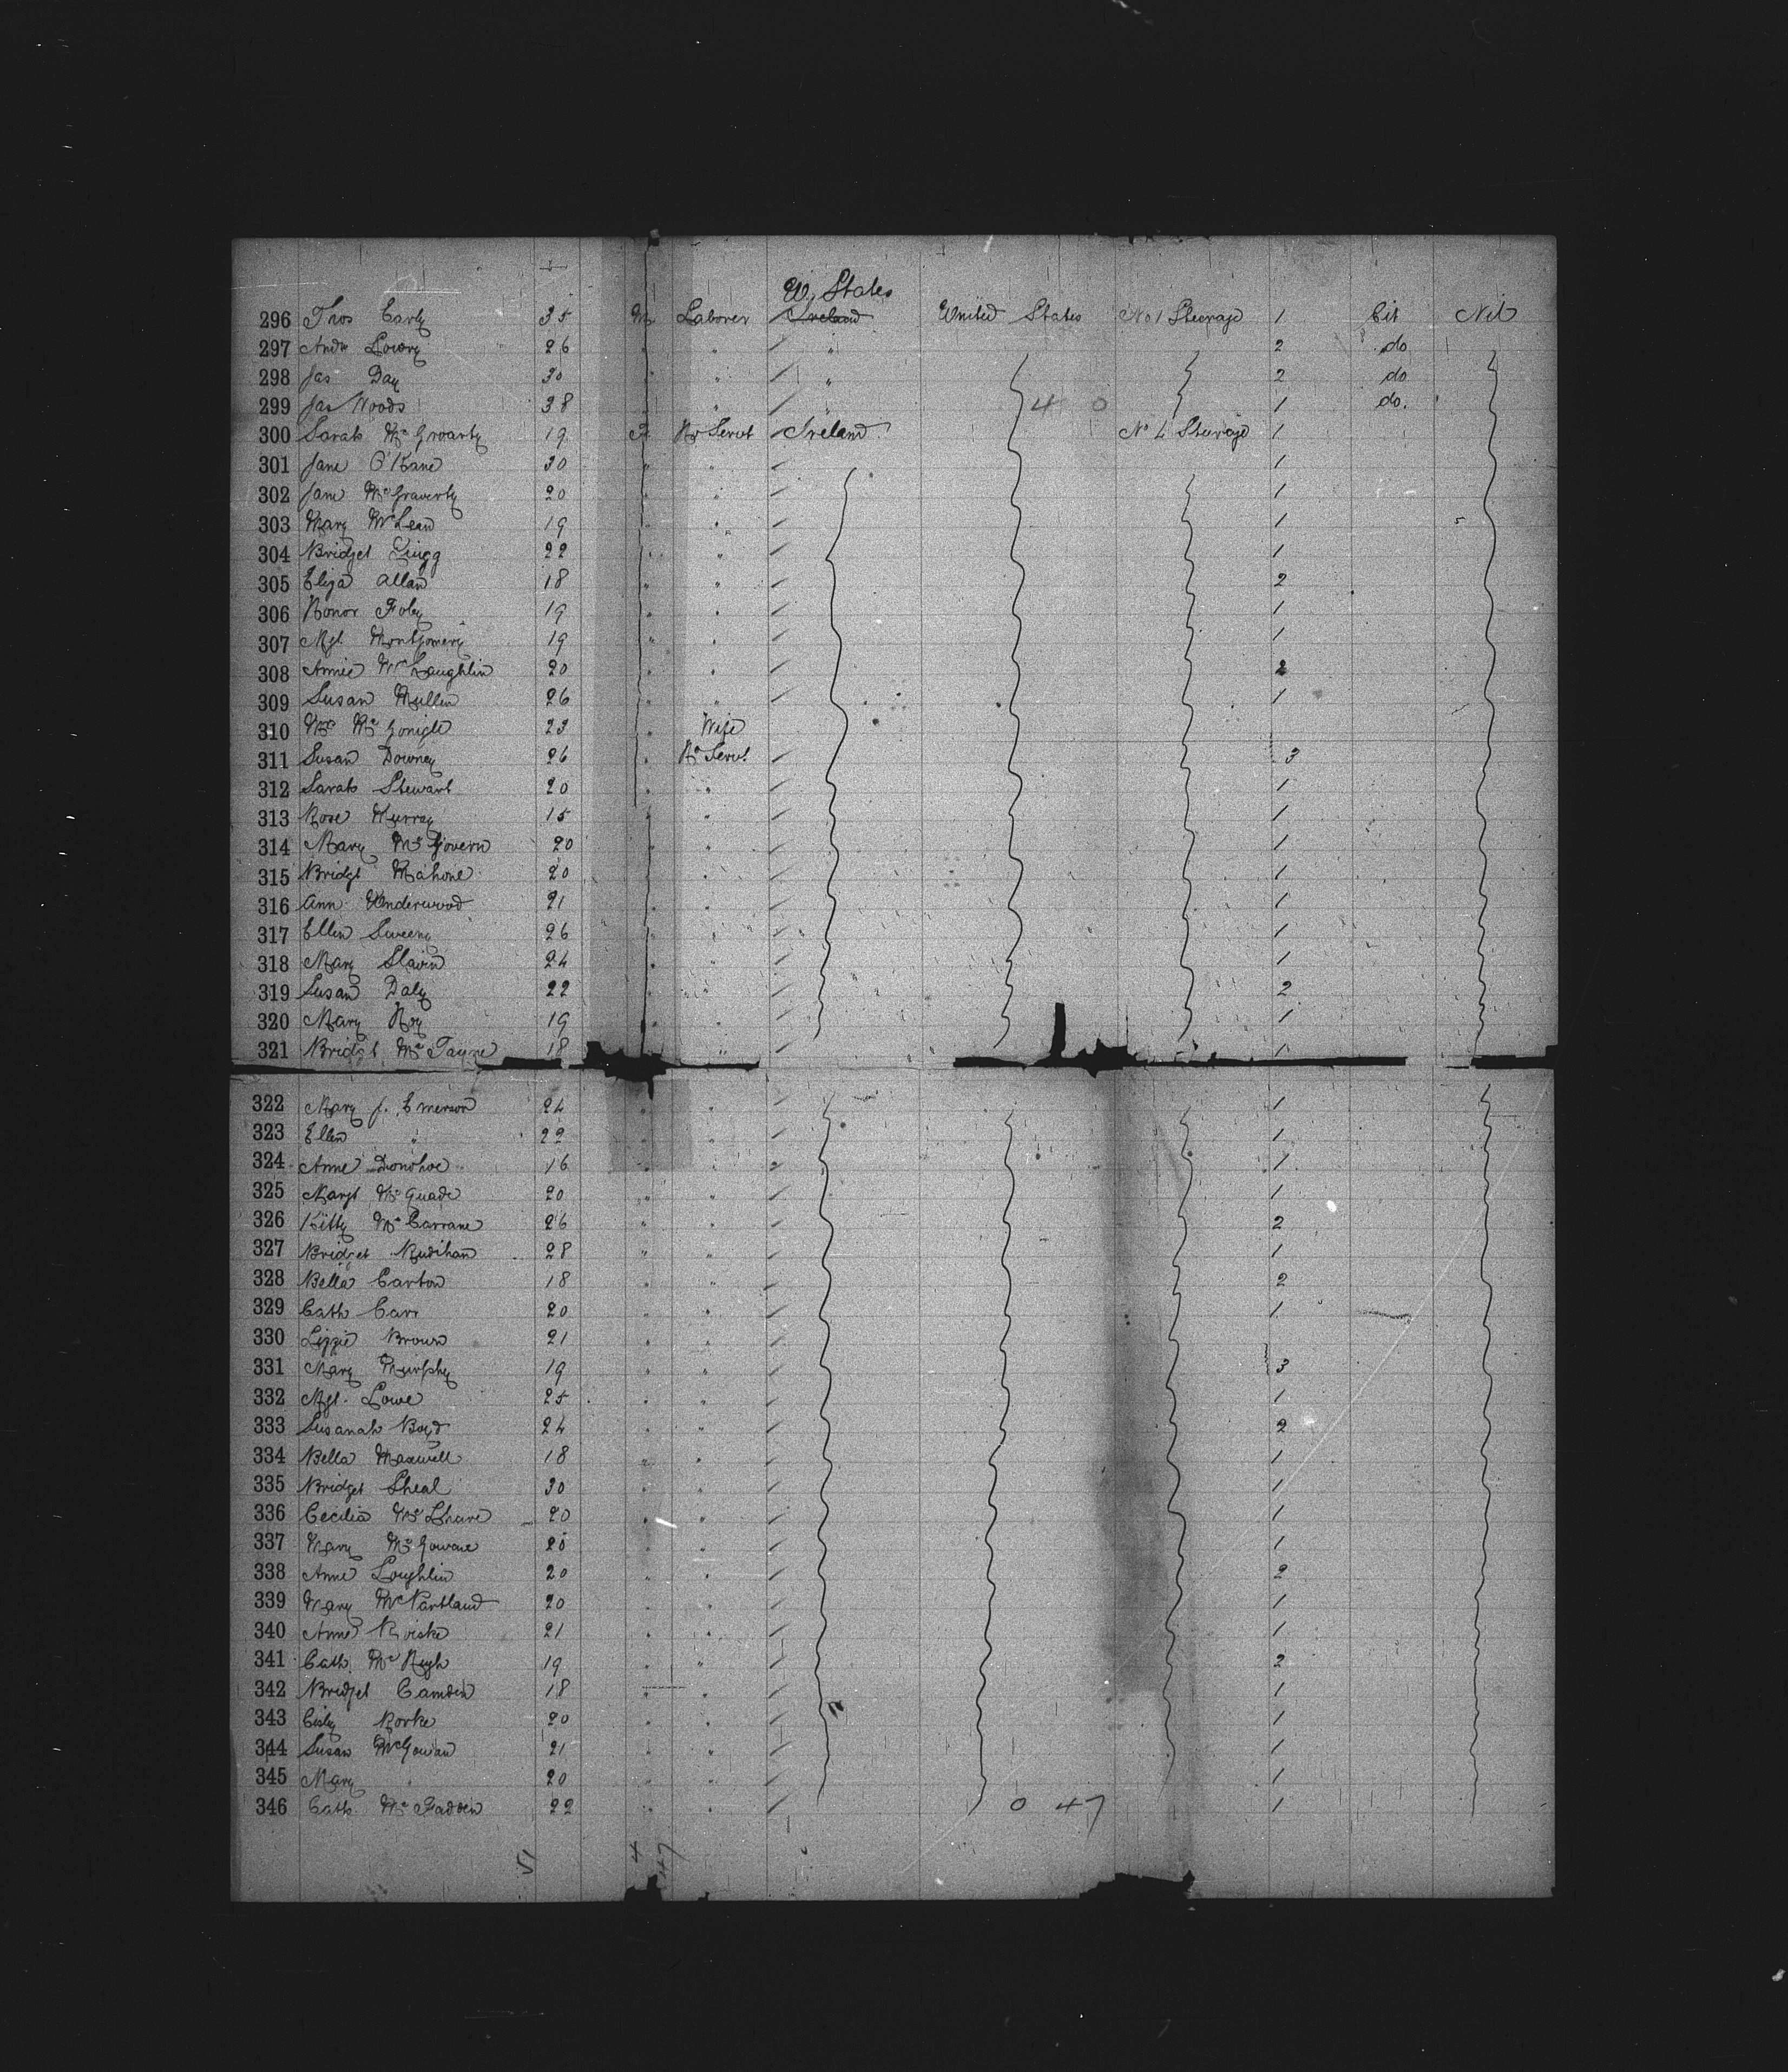 U. States
296 Thos Early 35 M Laborer Ireland United States No 1 Steerage 1 Cit Nil
297 Andw Lowry 26 " " " 2 do
298 Jas Day 30 " " " 2 do
299 Jas Woods 38 " " 4 0 1 do.
300 Sarah McGroarty 19 F Hs Servt Ireland No 4 Steerage 1
301 Jane O'Kane 30 " " 1
302 Jane McGraverty 20 " " 1
303 Mary McLean 19 " " 1
304 Bridget 22 " " 1
305 Eliza Allan 18 " " 2
306 Honor Foley 19 " " 1
307 Mgt. Montgomery 19 " " 1
308 Annie McLaughlin 20 " " 2
309 Susan Mullen 26 " " 1
310 McGonigle 23 " Wife
311 Susan Downey 26 " Hs Servt 3
312 Sarah Stewart 20 " " 1
313 Rose Murray 15 " " 1
314 Mary McGovern 20 " " 1
315 Bridgt Mahone 20 " " 1
316 Ann Underwood 21 " " 1
317 Ellen Sweeny 26 " " 1
318 Mary Slavin 24 " " 1
319 Susan Daly 22 " " 2
320 Mary Hoy 19 " " 1
321 Bridgt Mc 18 " 1
322 Mary J. Emerson 24 " " 1
323 Ellen " 22 " " 1
324 Anne Donohoe 16 " " 1
325 Margt McQuade 20 " " 1
326 Kitty McCarrane 26 " " 2
327 Bridget Rudihan 28 " " 1
328 Bella Carton 18 " " 2
329 Cath Carr 20 " " 1
330 Lizzie Brown 21 " " 1
331 Mary Murphy 19 " " 3
332 Mgt. Lowe 25 " " 1
333 Susanah Boyd 24 " " 2
334 Bella Maxwell 18 " " 1
335 Bridget Sheal 30 " " 1
336 Cecilia McShare 20 " " 1
337 Mary McGowan 20 " " 1
338 Anne Loughlin 20 " " 2
339 Mary McPartland 20 " " 1
340 Anne 21 " " 1
341 Cath McHugh 19 " " 2
342 Bridget Camden 18 " " 1
343 Cisly Rorke 20 " " 1
344 Susan McGowan 21 " " 1
345 Mary " 20 " " 1
346 Cath McFadden 22 " " 0 47 1
51 4 47